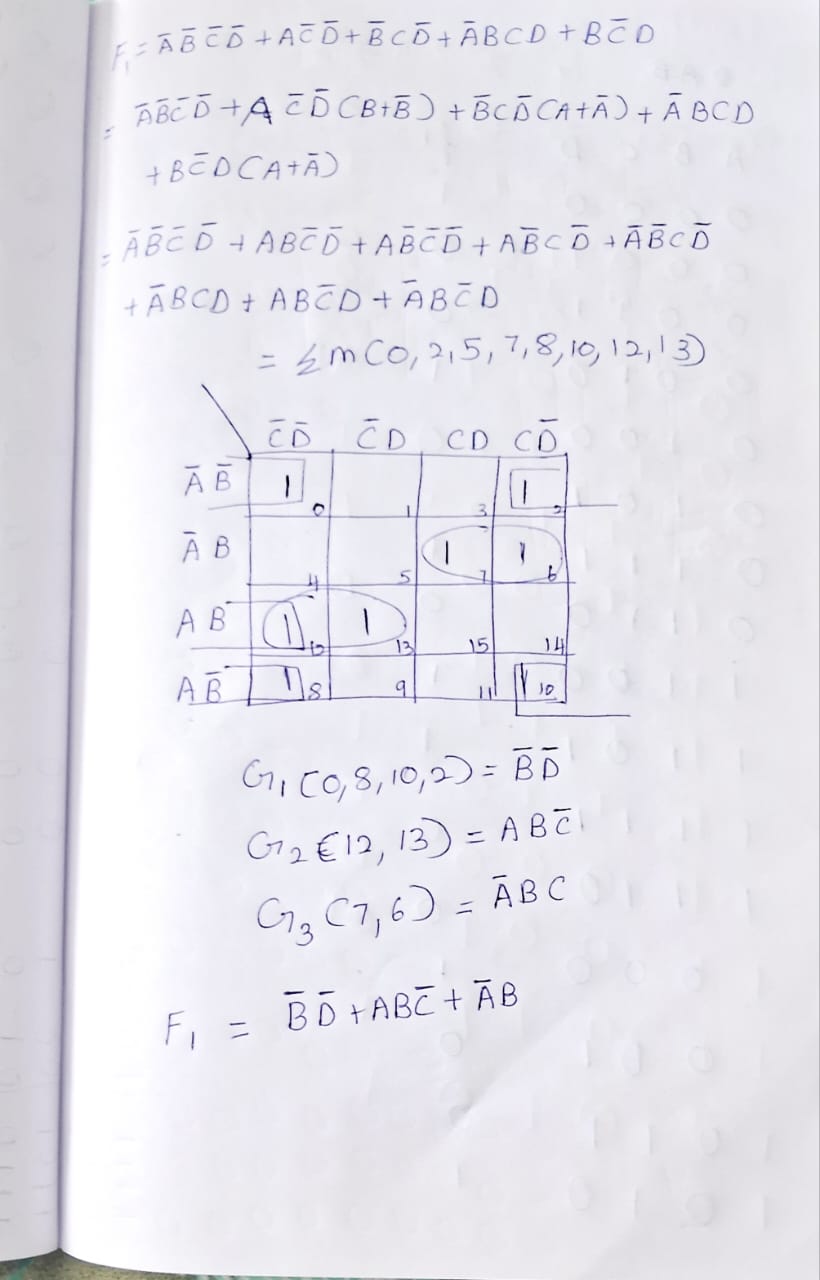 F₁ = ĀB̄C̄D̄ + AC̄D̄ + B̄CD̄ + ĀBCD + BC̄D
= ĀB̄C̄D̄ + A C̄D̄(B+B̄) + B̄CD̄(A+Ā) + ĀBCD
+ BC̄D(A+Ā)
= ĀB̄C̄D̄ + ABC̄D̄ + AB̄C̄D̄ + AB̄CD̄ + ĀB̄CD̄
+ ĀBCD + ABC̄D + ĀBC̄D
= Σm(0,2,5,7,8,10,12,13)
C̄D̄ C̄D CD CD̄
ĀB̄ 1 0 1 3 1 2
ĀB 4 5 1 7 1 6
AB 1 12 1 13 15 14
AB̄ 1 8 9 11 1 10
G₁(0,8,10,2) = B̄D̄
G₂(12,13) = ABC̄
G₃(7,6) = ĀBC
F₁ = B̄D̄ + ABC̄ + ĀB